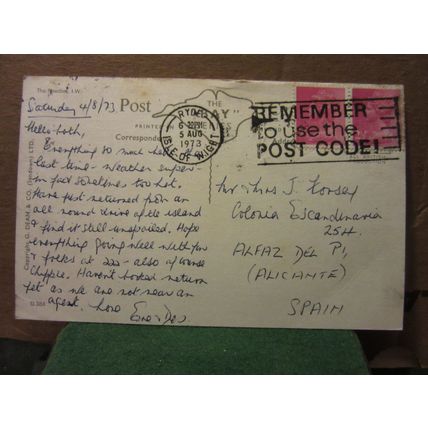 The Needles, I.W.
Saturday 4/8/73
Hello both,
Everything so much better
last time - weather super -
in fact sometimes too hot.
Have just returned from an
all round drive of the island
& find it still unspoiled. Hope
everything going well with you
& folks at - also of course
Chippie. Haven't booked return
yet as we are not near an
agent. Love
Post
THE
PRINTED
Correspondence
Copyright G. DEAN & CO.
RYDE
6 PM
5 AUG
1973
ISLE OF WIGHT
REMEMBER
to use the
POST CODE!
Mr Mrs J.
Colonia Escandinavia
254.
ALFAZ DEL PI,
(ALICANTE)
SPAIN